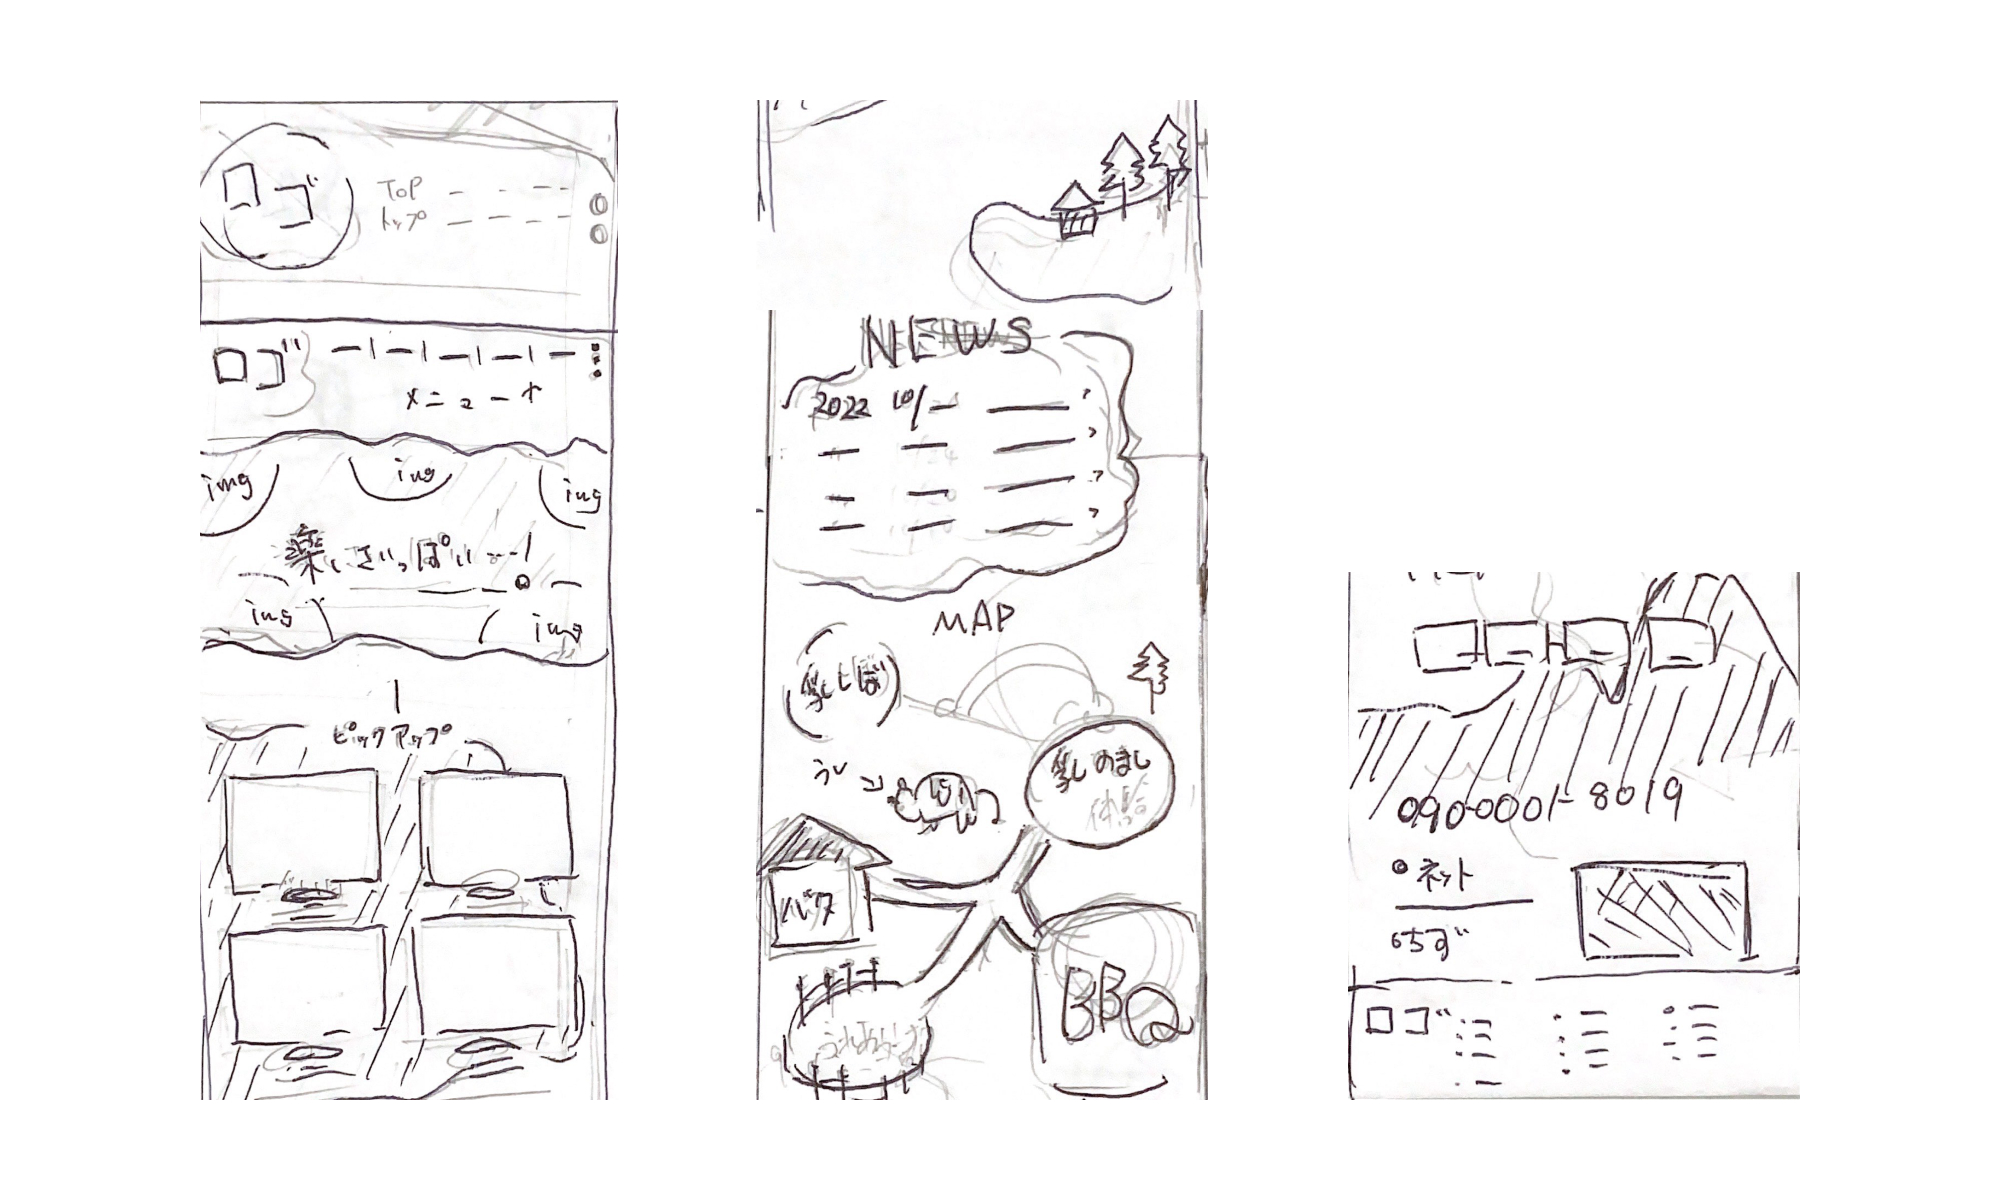 ロゴ
TOP
トップ
ロゴ
メニュー
img
img
img
楽しさいっぱい
img
img
ピックアップ
NEWS
2022 10/
MAP
乳しぼ
乳しのまし
体験
バタ
BBQ
090-0001-8019
ネット
ちず
ロゴ